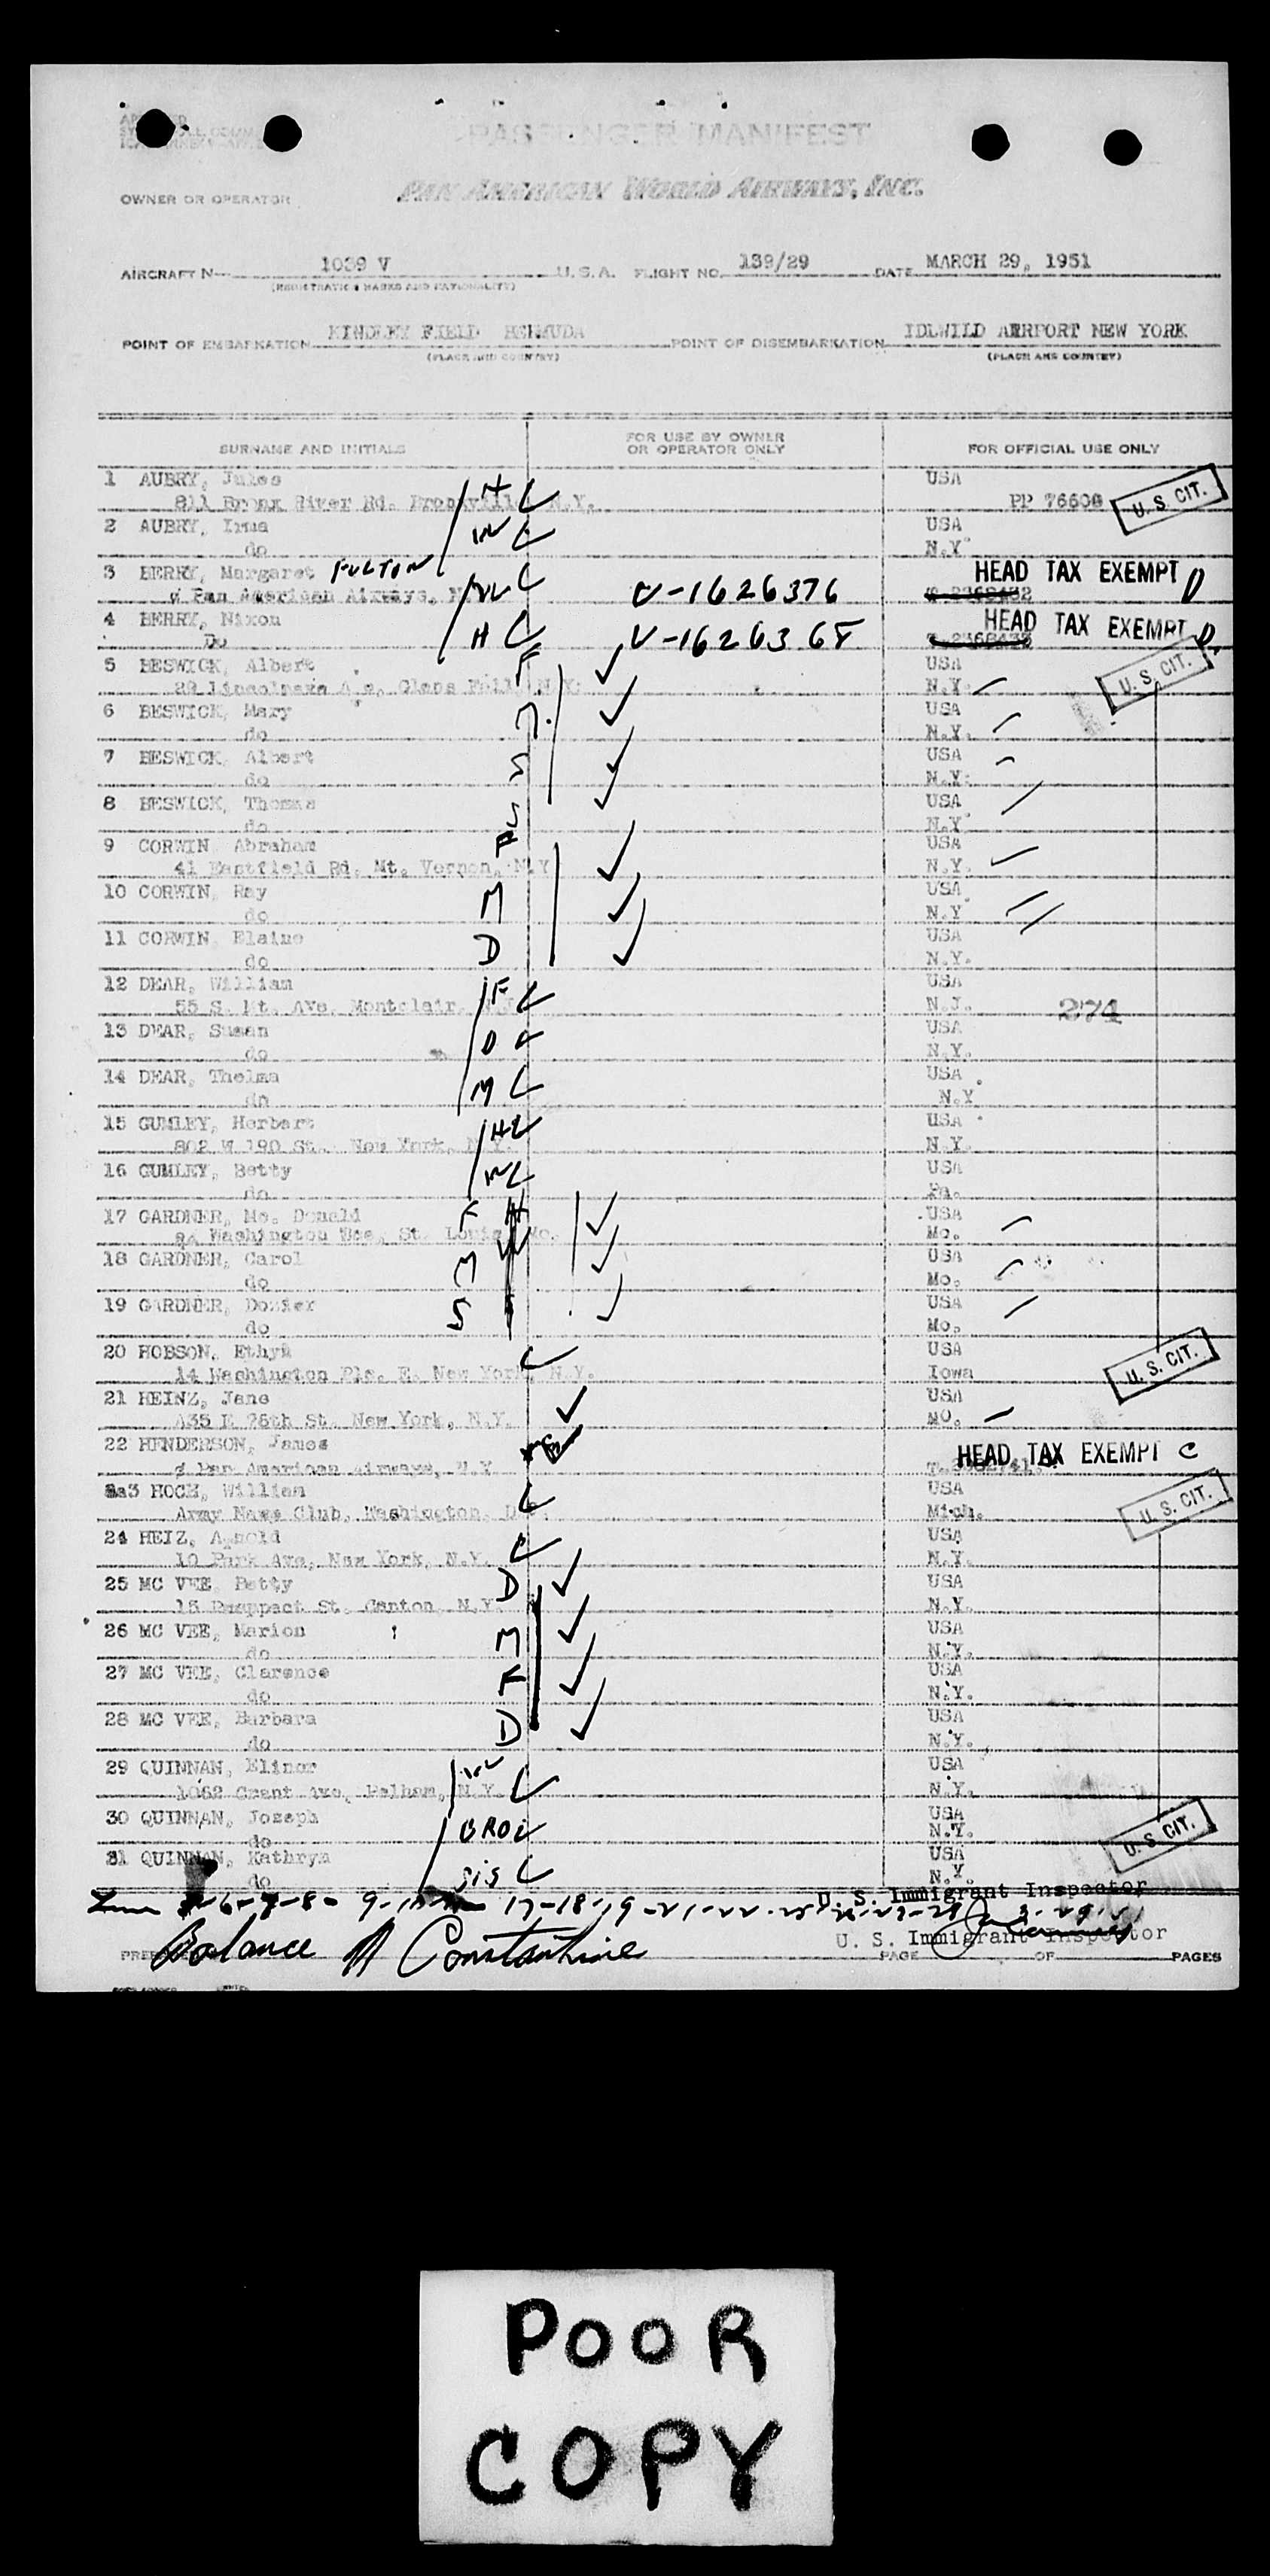 PASSENGER MANIFEST
OWNER OR OPERATOR PAN AMERICAN WORLD AIRWAYS, INC.
AIRCRAFT N 1039 V U.S.A. FLIGHT NO. 139/29 DATE MARCH 29, 1951
(REGISTRATION MARKS AND NATIONALITY)
POINT OF EMBARKATION KINDLEY FIELD BERMUDA POINT OF DISEMBARKATION IDLWILD AERPORT NEW YORK
(PLACE AND COUNTRY) (PLACE AND COUNTRY)
SURNAME AND INITIALS FOR USE BY OWNER OR OPERATOR ONLY FOR OFFICIAL USE ONLY
1 AUBRY, Jules H USA
811 Bronx River Rd. N.Y. PP 76608 U.S. CIT.
2 AUBRY, Irma W USA
do N.Y.
3 BERRY, Margaret FULTON HEAD TAX EXEMPT D
c/ Pan American Airways, W V-1626376
4 BERRY, Nixon HEAD TAX EXEMPT D
Do H V-1626368
5 BESWICK, Albert F USA U.S. CIT.
29 Ave, Glens Fall N.Y. N.Y.
6 BESWICK, Mary M. USA
do N.Y.
7 BESWICK, Albert S USA
do N.Y.
8 BESWICK, Thomas S USA
do N.Y.
9 CORWIN, Abraham F USA
41 Eastfield Rd. Mt. Vernon, N.Y N.Y.
10 CORWIN, Ray M USA
do N.Y
11 CORWIN, Elaine D USA
do N.Y.
12 DEAR, William F USA
55 S. Mt. Ave. Montclair, N.J. N.J. 274
13 DEAR, Susan D USA
do N.Y.
14 DEAR, Thelma M USA
do N.Y
15 GUMLEY, Herbert H USA
802 W 190 St. New York, N.Y. N.Y.
16 GUMLEY, Betty W USA
do Pa.
17 GARDNER, Mc. Donald F H USA
Washington St. Louis, Mo. Mo.
18 GARDNER, Carol M W USA
do Mo.
19 GARDNER, S USA
do Mo.
20 HOBSON, USA
14 Washington Plc. E. New York, N.Y. Iowa U.S. CIT.
21 HEINZ, Jane USA
435 E 75th St. New York, N.Y. MO.
22 HENDERSON, James HEAD TAX EXEMPT C
c/ Pan American Airways, N.Y
23 HOCH, William USA
Army Navy Club, Washington, D.C. Mich. U.S. CIT.
24 HEIZ, Arnold USA
10 Park Ave, New York, N.Y. N.Y.
25 MC VEE, Betty D USA
15 St. Canton, N.Y. N.Y.
26 MC VEE, Marion M USA
do N.Y.
27 MC VEE, Clarence F USA
do N.Y.
28 MC VEE, Barbara D USA
do N.Y.
29 QUINNAN, Elinor USA
1062 Grant Ave, Pelham, N.Y. N.Y.
30 QUINNAN, Joseph BRO USA
do N.Y. U.S. CIT.
31 QUINNAN, Kathryn SIS USA
do N.Y.
U. S. Immigrant Inspector
Balance A Constantine
U. S. Immigrant Inspector
PAGE OF PAGES
POOR
COPY